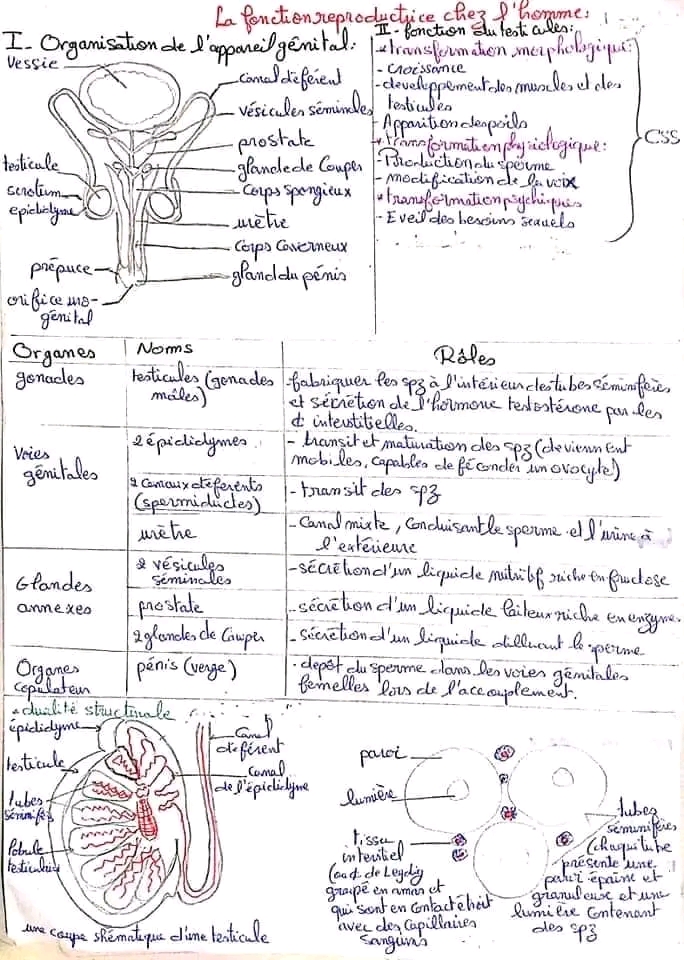 La fonction reproductrice chez l'homme:
I- Organisation de l'appareil génital:
Vessie
canal déférent
vésicules séminales
prostate
glande de Couper
Corps spongieux
urètre
Corps Caverneux
gland du pénis
testicule
scrotum
epididyme
prépuce
orifice uro-
génital
II- fonction du testicules:
* transformation morphologique:
- Croissance
- developpement des muscles et des
testicules
- Apparition des poils
* transformation physiologique:
- Production du sperme
- modification de la voix
* transformation psychiques
- Eveil des besoins sexuels
CSS
Organes
Noms
Rôles
gonades
testicules (gonades
mâles)
- fabriquer les spz à l'intérieur des tubes séminifères
et sécrétion de l'hormone testostérone par les
¢ interstitielles.
Voies
génitales
2 épididymes
- transit et maturation des spz (deviennent
mobiles, capables de féconder un ovocyte)
2 canaux déferents
(spermiductes)
- transit des spz
urètre
- Canal mixte, conduisant le sperme et l'urine à
l'extérieure
Glandes
annexes
2 vésicules
séminales
- sécrétion d'un liquide nutritif riche en fructose
prostate
- sécrétion d'un liquide laiteux riche en enzyme.
2 glandes de Cowper
- sécrétion d'un liquide dilluant le sperme
Organes
copulateur
pénis (verge)
- depôt du sperme dans les voies génitales
femelles lors de l'accouplement.
* dualité structurale
épididyme
testicule
tubes
séminifès
lobule
testiculaire
Canal
déférent
Canal
de l'épididyme
une coupe shématique d'une testicule
paroi
lumière
tissu
interstiel
(ou ¢ de Leydig
groupé en amas et
qui sont en contact étroit
avec des capillaires
sanguins
tubes
séminifères
(chaque tube
présente une
paroi épaisse et
granuleuse et une
lumière contenant
des spz